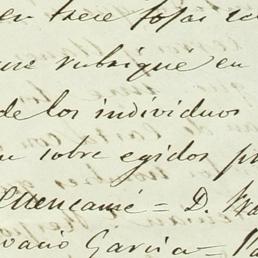 en trece fojas
rubrique en
de los individuos
sobre egidos
Cuencamé = D.
García =